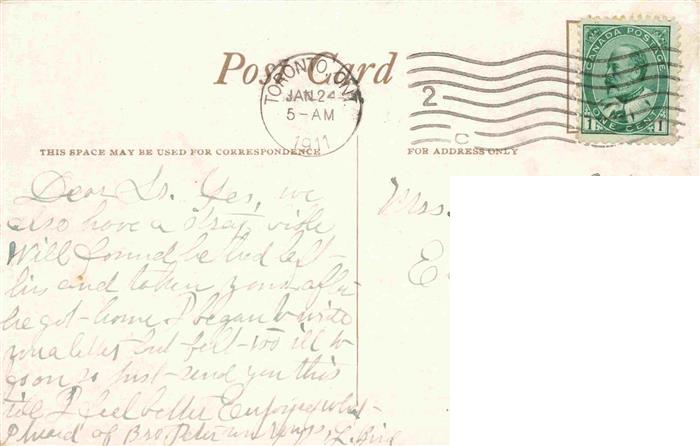 Post Card
TORONTO, ONT.
JAN 24
5-AM
1911
2
C
CANADA POSTAGE
1 ONE CENT 1
THIS SPACE MAY BE USED FOR CORRESPONDENCE
FOR ADDRESS ONLY
Mrs.
E
Dear Yes, we
also have a
Will found he had left
his and taken yours after
he got home. I began to write
you a letter but felt too ill so
soon so just send you this
till I feel better Enjoyed what
I heard of Bro. Peter